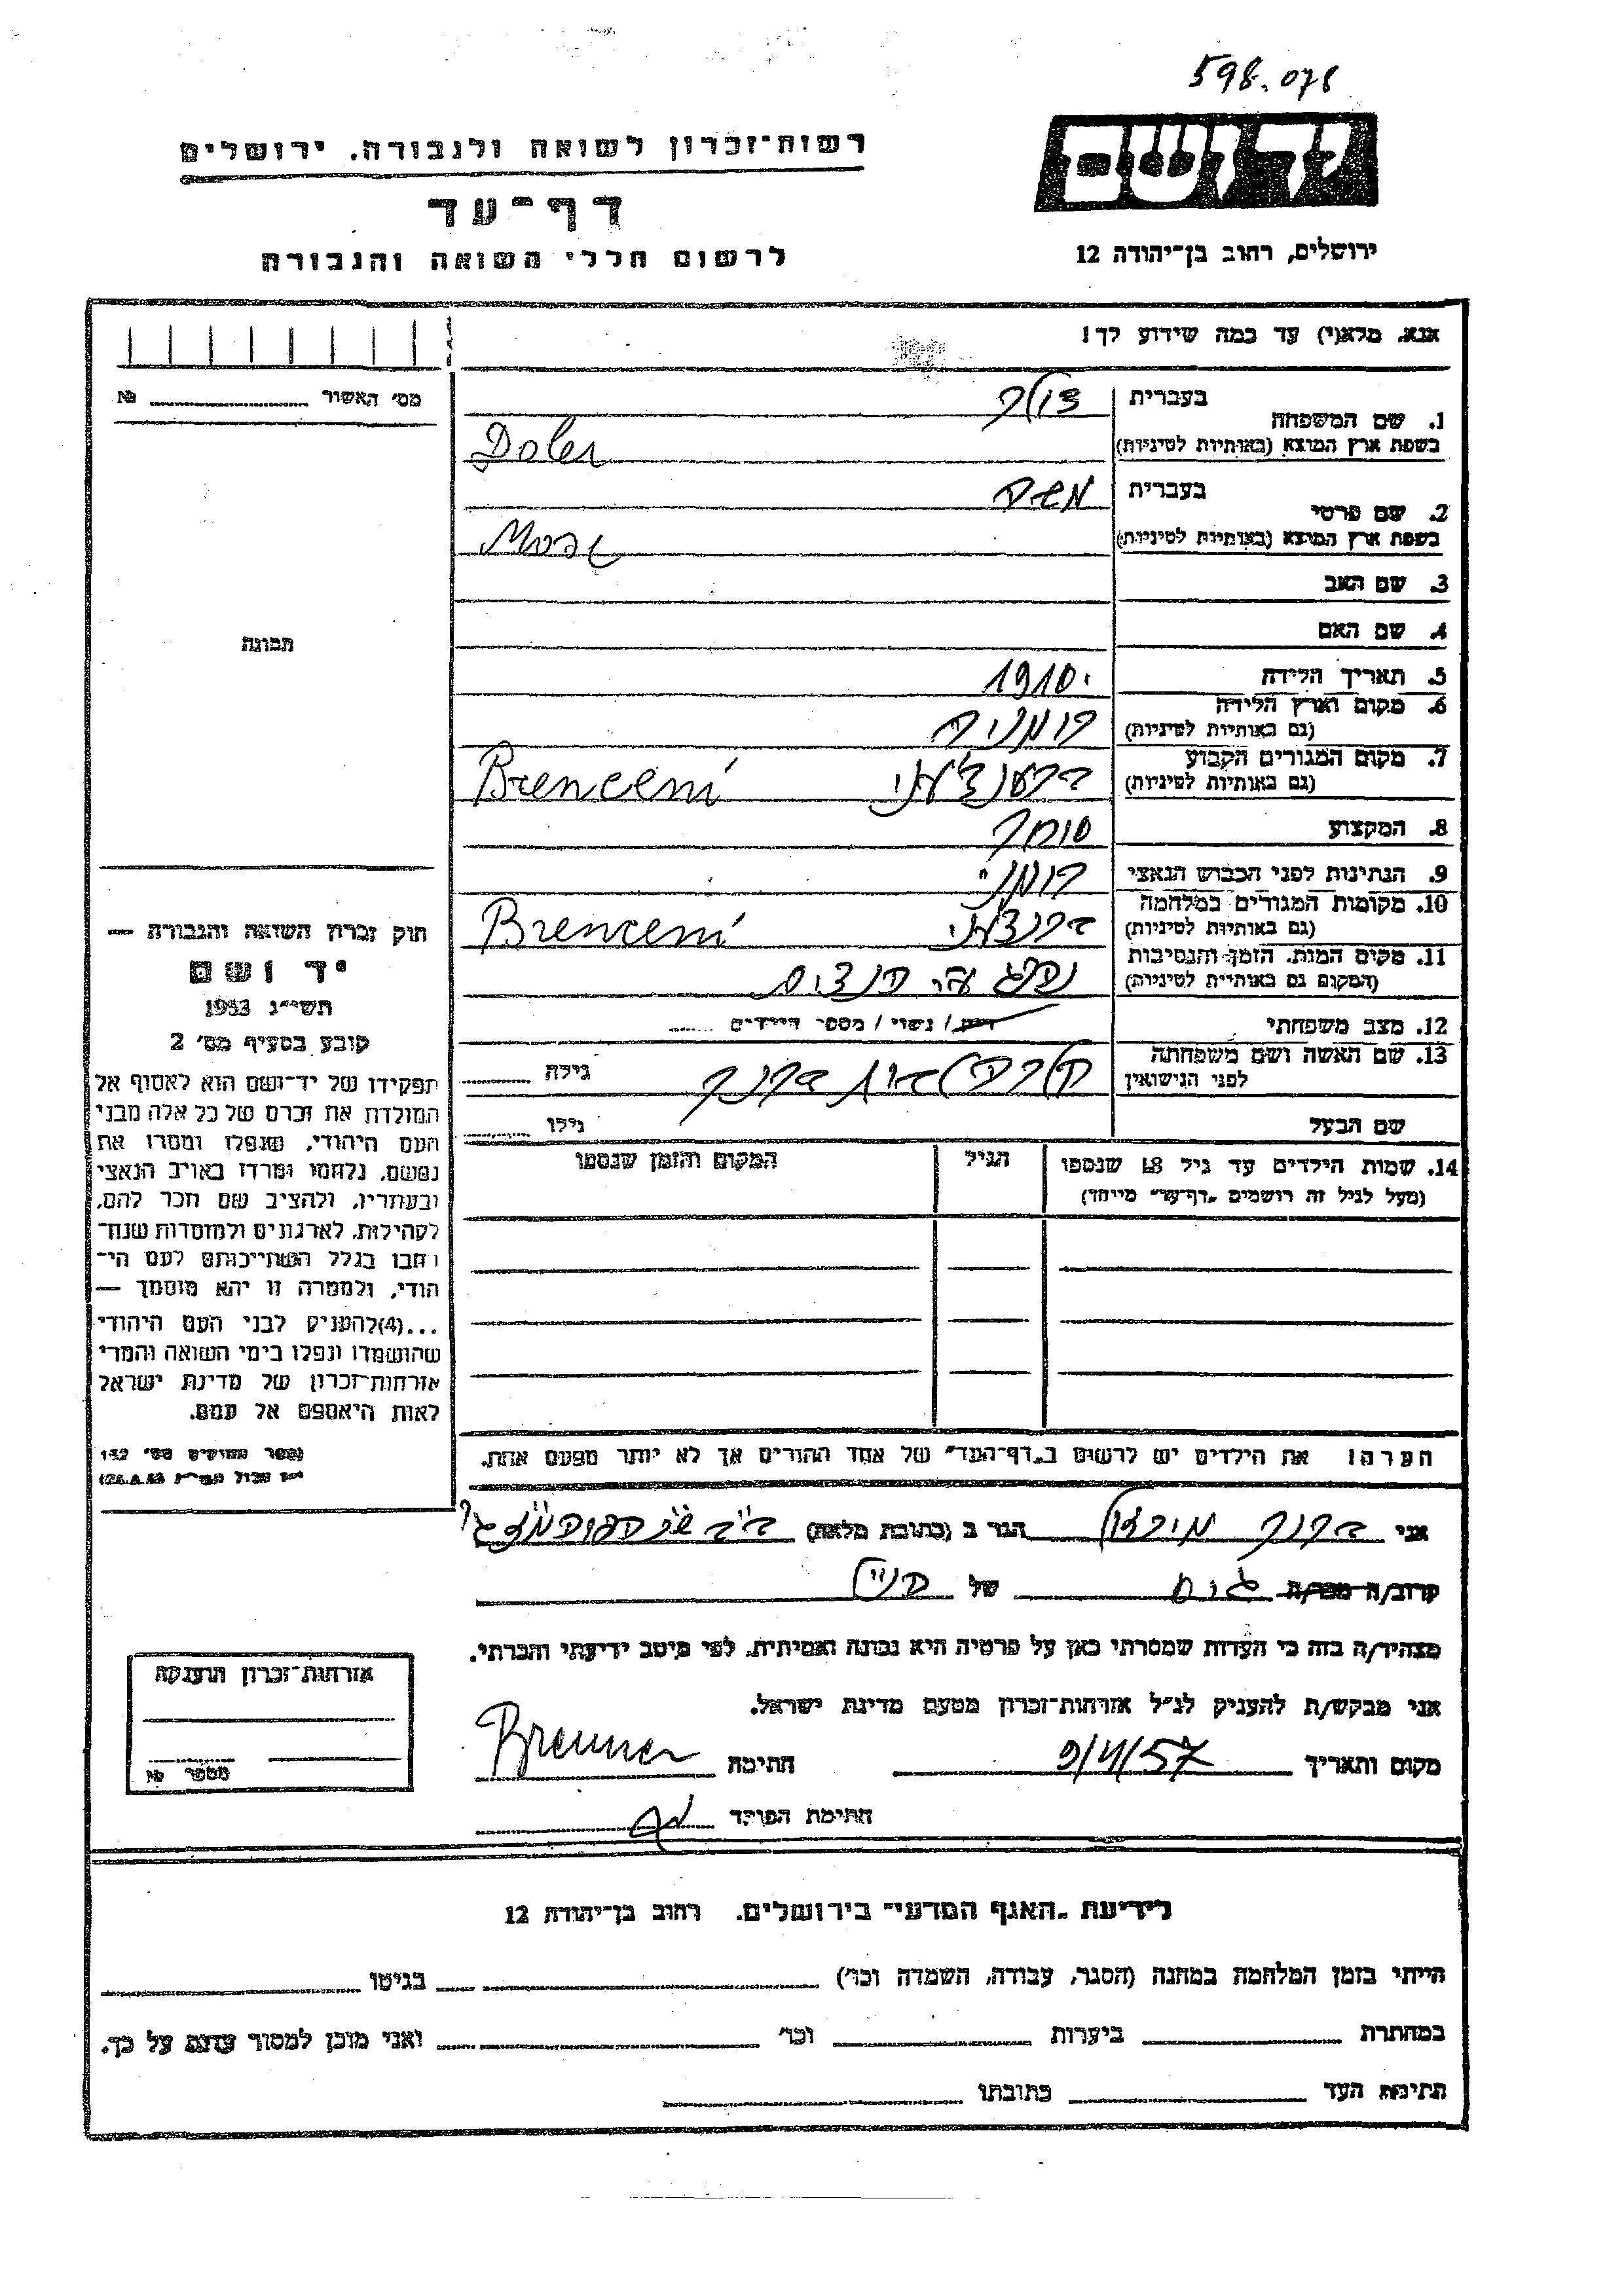 598.078
יד ושם
רשות־זכרון לשואה ולגבורה. ירושלים
דף־עד
ירושלים, רחוב בן־יהודה 12
לרשום חללי השואה והגבורה
אנא. מלא(י) עד כמה שידוע לך!
מס׳ האשור №
1. שם המשפחה
בעברית
בשפת ארץ המוצא (באותיות לטיניות)
Doler
2. שם פרטי
בעברית משה
בשפת ארץ המוצא (באותיות לטיניות)
3. שם האב
4. שם האם
תמונה
5. תאריך הלידה 1910
6. מקום וארץ הלידה
(גם באותיות לטיניות) רומניה
7. מקום המגורים הקבוע
(גם באותיות לטיניות) Brenceni
8. המקצוע סוחר
9. הנתינות לפני הכבוש הנאצי רומני
10. מקומות המגורים במלחמה
(גם באותיות לטיניות) Brenceni
11. מקום המות. הזמן והנסיבות
(המקום גם באותיית לטיניות)
12. מצב משפחתי רווק / נשוי / מספר הילדים
13. שם האשה ושם משפחתה
לפני הנישואין גילה
שם הבעל גילו
14. שמות הילדים עד גיל 18 שנספו הגיל המקום והזמן שנספו
(מעל לגיל זה רושמים „דף־עד״ מייחד)
חוק זכרון השואה והגבורה —
יד ושם
תשי״ג 1953
קובע בסעיף מס׳ 2
תפקידו של יד־ושם הוא לאסוף אל
המולדת את זכרם של כל אלה מבני
העם היהודי, שנפלו ומסרו את
נפשם, נלחמו ומרדו באויב הנאצי
ובעוזריו, ולהציב שם וזכר להם,
לקהילות, לארגונים ולמוסדות שנח־
רבו בגלל השתייכותם לעם הי־
הודי, ולמטרה זו יהא מוסמך —
...(4)להעניק לבני העם היהודי
שהושמדו ונפלו בימי השואה והמרי
אזרחות־זכרון של מדינת ישראל
לאות היאספם אל עמם.
הערה: את הילדים יש לרשום ב„דף־העד״ של אחד ההורים אך לא יותר מפעם אחת.
אני ברנר הגר ב (כתובת מלאה)
קרוב/ה מכר/ה של
מצהיר/ה בזה כי העדות שמסרתי כאן על פרטיה היא נכונה ואמיתית, לפי מיטב ידיעתי והכרתי.
אני מבקש/ת להעניק לנ״ל אזרחות־זכרון מטעם מדינת ישראל.
מקום ותאריך 9/4/57 חתימה Brenner
חתימת הפוקד
אזרחות־זכרון הוענקה
מספר
לידיעת „האגף המדעי״ בירושלים. רחוב בן־יהודה 12
הייתי בזמן המלחמה במחנה (הסגר, עבודה, השמדה וכו׳) בגיטו
במחתרת ביערות וכו׳ ואני מוכן למסור עדות על כך.
חתימת העד כתובתו